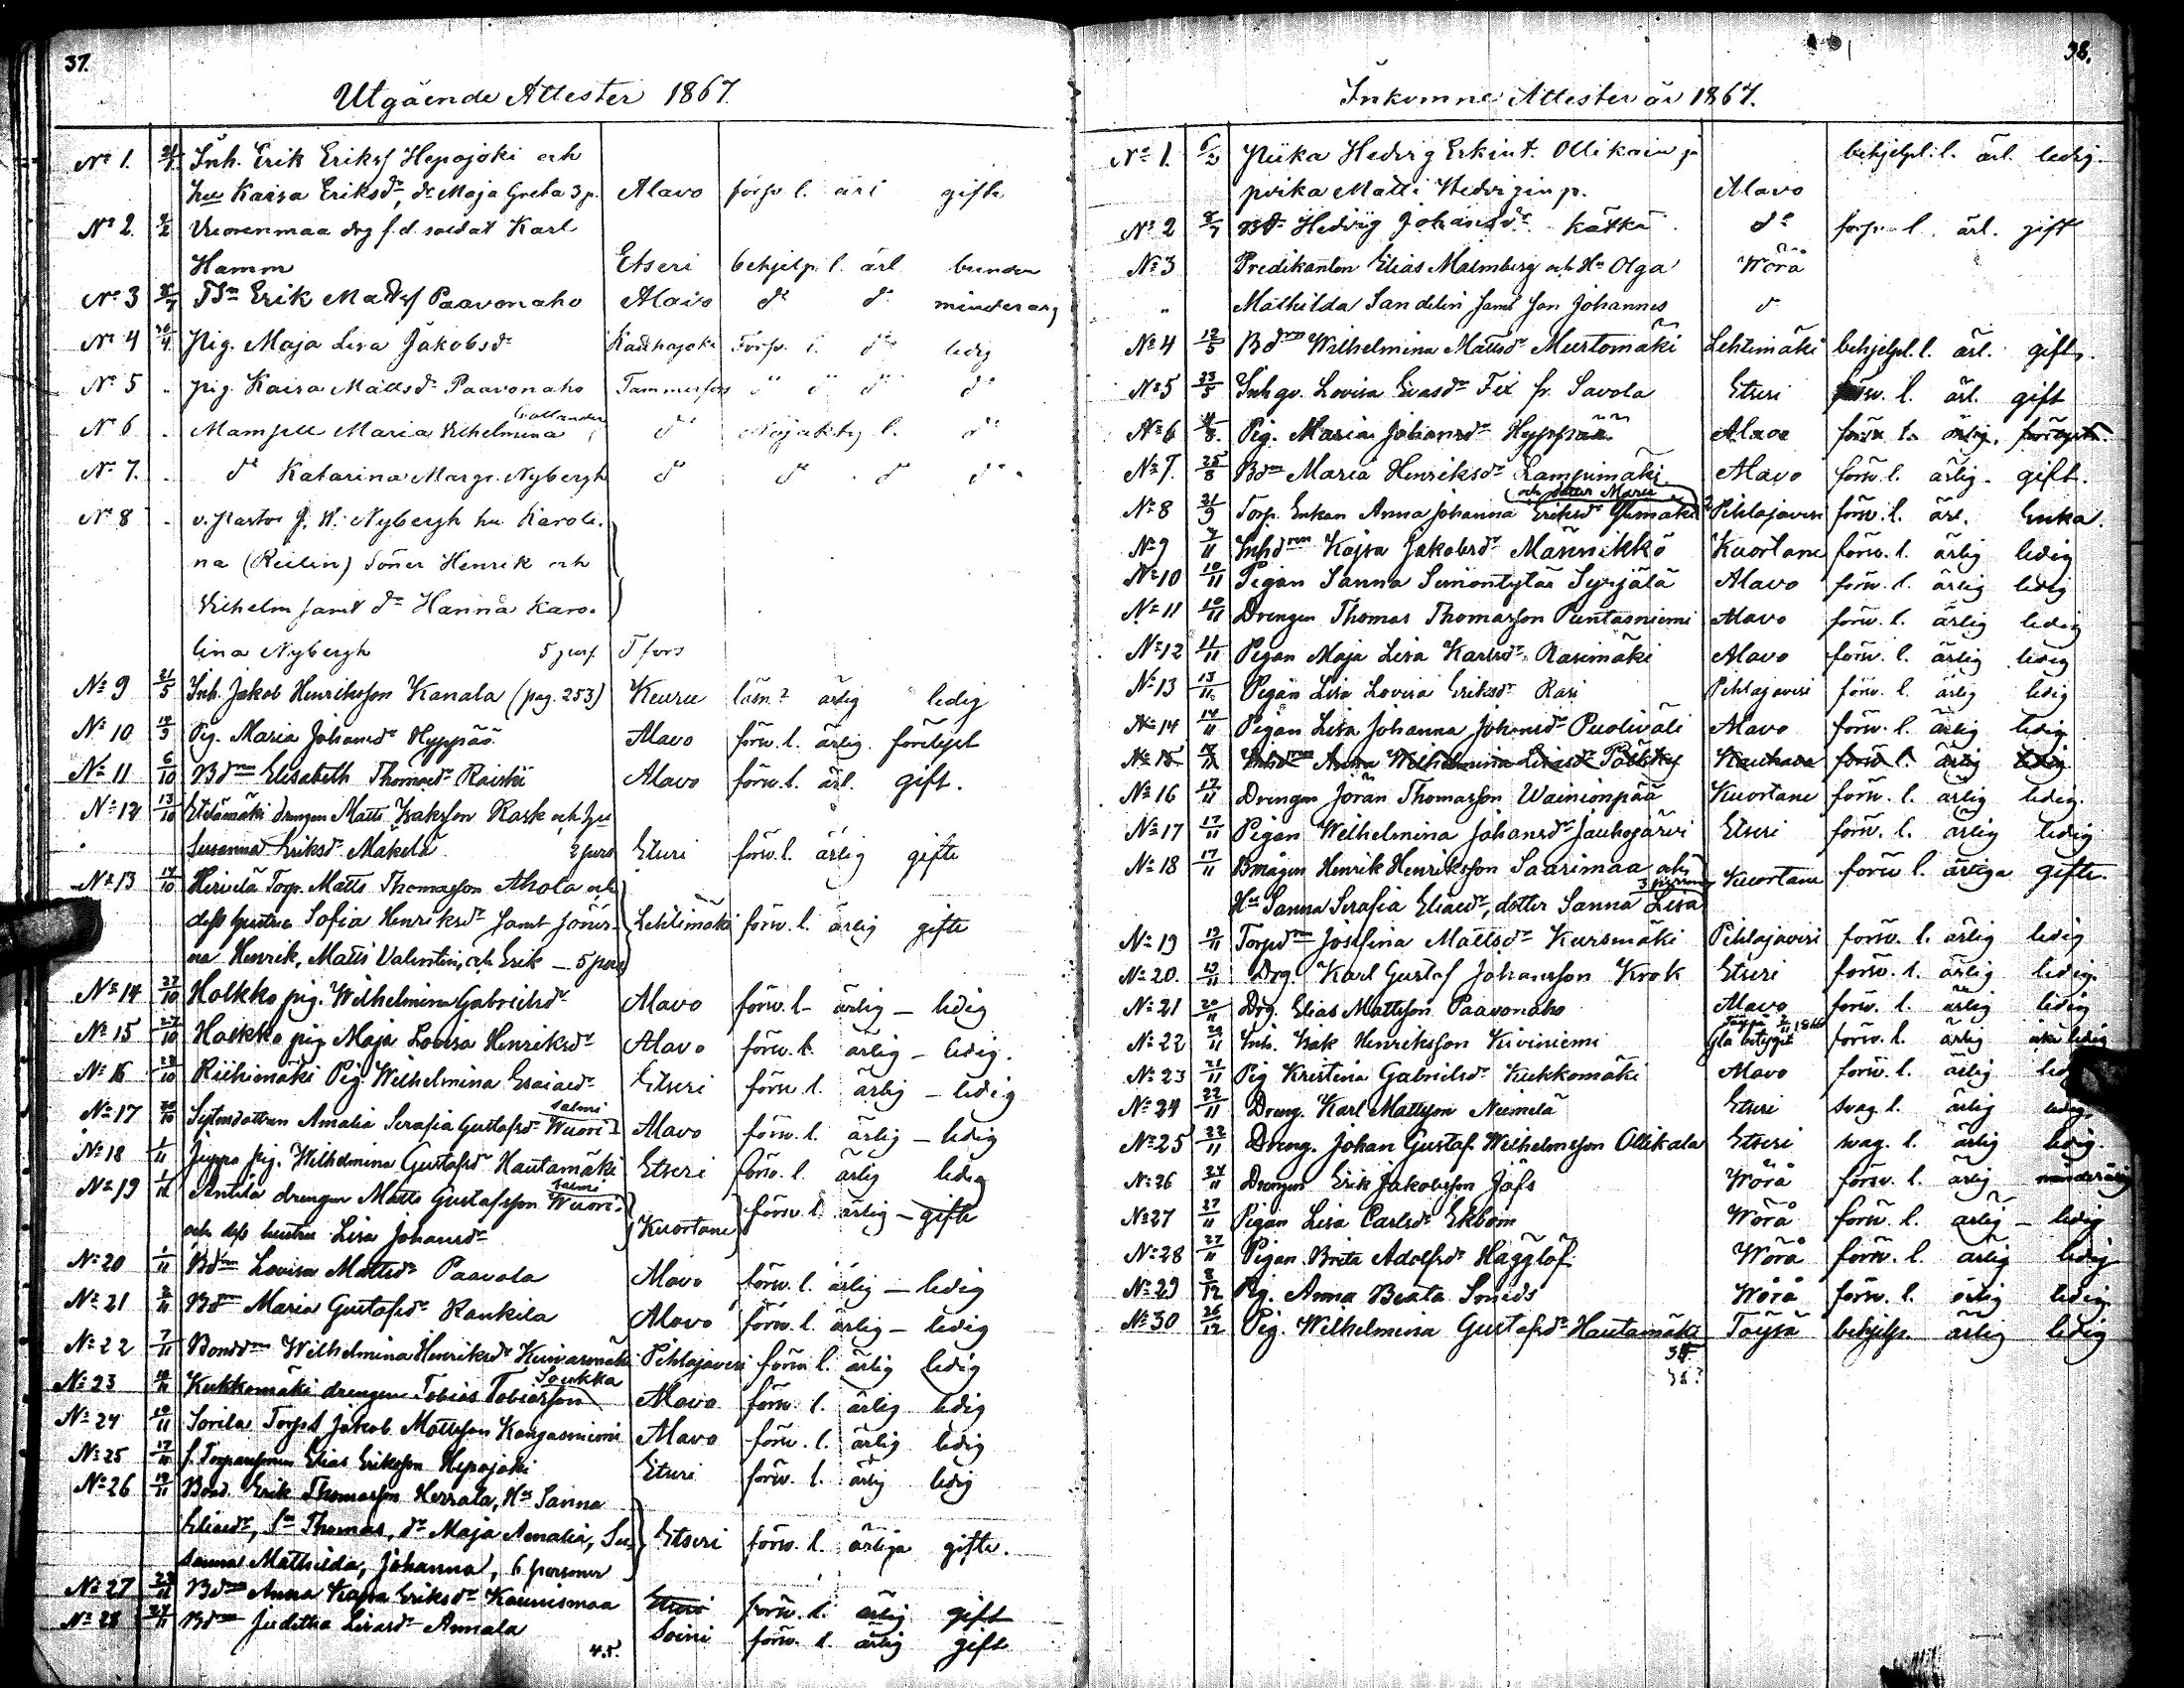 37.
Utgående Attester 1867.
No 1. Inh. Erik Eriksf Hepojoki och
hu Kaisa Eriksdr, dr Maja Greta 3 p. Alavo försv l. ärl gifte
No 2. Vuorenmaa drg f.d. soldat Karl
Hamm Etseri behjelp. l. ärl bunden
No 3 Erik Mattsf Paavonaho Alavo do do minderårg
No 4 Pig. Maja Lisa Jakobsdr Kauhajoki Försv. l. do ledig
No 5 Pig. Kaisa Mattsdr Paavonaho Tammerfors do do
No 6 Mamsell Maria Vilhelmina do Nöjaktig l. do
No 7. do Katarina Margr. Nybergh do do do do
No 8 v. Pastor J. W. Nybergh hu Karoli-
na (Reilin) Söner Henrik och
Vilhelm samt dr Hanna Karo-
lina Nybergh 5 pers. Tfors
No 9 21/5 Inh. Jakob Henriksson Kanala (pag. 253) Keuru läsn? ärlig ledig
No 10 Pig. Maria Johansdr Hyppää Alavo förv. l. ärlig. förelyst
No 11 6/10 Bdrn Elisabeth Thomasdr Raiski Alavo förv. l. ärl. gift.
No 12 13/10 Etelämäki drengen Matts Isaksson Rask och hu
Susanna Eriksdr Mäkelä 2 pers Etseri förv. l. ärlig gifte
No 13 Hirvelä Torp. Matts Thomasson Ahola och
dess hustru Sofia Henriksdr samt söner- Lehtimäki förv. l. ärlig gifte
na Henrik, Matts Valentin, och Erik — 5 pers
No 14 27/10 Holkko pig. Wilhelmina Gabrielsdr Alavo förv. l. ärlig — ledig
No 15 27/10 Holkko pig Maja Lovisa Henriksdr Alavo förv. l. ärlig — ledig.
No 16 Riihimäki Pig. Wilhelmina Esaiasdr Etseri förv. l. ärlig — ledig
salmi
No 17 Systerdottren Amalia Serafia Gustafsdr Wuori- Alavo förv. l. ärlig — ledig
No 18 1/11 Juppo pig. Wilhelmina Gustafsdr Hautamäki Etseri förv. l. ärlig ledig
salmi
No 19 1/11 Antila drengen Matts Gustafsson Wuori- förv. l. ärlig — gifte
och dess hustru Lisa Johansdr Kuortane
No 20 1/11 Bdrn Lovisa Mattsdr Paavola Alavo förv. l. ärlig — ledig
No 21 2/11 Bdrn Maria Gustafsdr Kaukila Alavo förv. l. ärlig — ledig
No 22 7/11 Bonddrn Wilhelmina Henriksdr Kuivasmäki Pihlajaveri förv. l. ärlig ledig
Soukka
No 23 Kukkomäki drengen Tobias Tobiasson Alavo förv. l. ärlig ledig
No 24 10/11 Sorila Torps Jakob Mattsson Kangasniemi Alavo förv. l. ärlig ledig
No 25 17/11 f. Torparesonen Elias Eriksson Hepojoki Etseri förv. l. ärlig ledig
No 26 Bond. Erik Thomasson Herrala, Hu Sanna
Eliasdr, Sn Thomas, dr Maja Amalia, Su- Etseri förv. l. ärliga gifte.
sanna Mathilda, Johanna, 6 personer
No 27 23/11 Bdrn Anna Kajsa Eriksdr Kaunismaa Etseri förv. l. ärlig gift
No 28 Bdrn Juditha Lisasdr Annala Soini förv. l. ärlig gift
45.
38.
Inkomne Attester år 1867.
No 1. 6/2 Piika Hedvig Erkint. Ollikain p behjelpl. l. ärl. ledig.
poika Matti Hedvigin p. Alavo
No 2 Hedvig Johansdr Kätkä do försv. l. ärl. gift
No 3 Predikanten Elias Malmberg och Hu Olga Wörå
" Mathilda Sandelin samt son Johannes do
No 4 12/5 Bdrn Wilhelmina Mattsdr Murtomäki Lehtimäki behjelpl. l. ärl. gift.
No 5 23/5 Inh gv. Lovisa Evasdr Fix fr. Savola Etseri förv. l. ärl. gift
No 6 Pig. Maria Johansdr Hyppää Alavo förv. l. ärlig. förelyst.
No 7. 25/8 Bdrn Maria Henriksdr Lampimäki Alavo förv. l. ärlig. gift.
och dotter Maria
No 8 21/9 Torp. Enkan Anna Johanna Eriksdr Ylimäki Pihlajaveri förv. l. ärl. Enka.
No 9 7/11 Inhdrn Kajsa Jakobsdr Männikkö Kuortane förv. l. ärlig ledig
No 10 10/11 Pigan Sanna Simontytär Syrjälä Alavo förv. l. ärlig ledig
No 11 10/11 Drengen Thomas Thomasson Puntasniemi Alavo förv. l. ärlig ledig
No 12 11/11 Pigan Maja Lisa Karlsdr Rasimäki Alavo förv. l. ärlig ledig
No 13 13/11 Pigan Lisa Lovisa Eriksdr Rasi Pihlajaveri förv. l. ärlig ledig
No 14 14/11 Pigan Lisa Johanna Johansdr Puoliväli Alavo förv. l. ärlig ledig
No 15 Inhdrn Anna Wilhelmina Lisasdr Kauhava förv. l. ärlig ledig
No 16 17/11 Drengen Jöran Thomasson Wainionpää Kuortane förv. l. ärlig ledig.
No 17 17/11 Pigan Wilhelmina Johansdr Jauhojärvi Etseri förv. l. ärlig ledig
No 18 17/11 Bmågen Henrik Henriksson Saarimaa och Kuortane förv l. ärliga gifte.
3 personer
Hu Sanna Serafia Eliasdr, dotter Sanna Lisa
No 19 19/11 Torpdrn Josefina Mattsdr Kursmäki Pihlajaveri förv. l. ärlig ledig
No 20. 19/11 Drg. Karl Gustaf Johansson Krok Etseri förv. l. ärlig ledig.
No 21 20/11 Drg. Elias Mattsson Paavonaho Alavo förv. l. ärlig ledig
No 22 Inh. Isak Henriksson Kiviniemi förv. l. ärlig ledig
No 23 21/11 Pig Kristina Gabrielsdr Kukkomäki Alavo förv. l. ärlig
No 24 22/11 Dreng. Karl Mattsson Niemelä Etseri svag l. ärlig ledig.
No 25 22/11 Dreng. Johan Gustaf Wilhelmsson Ollikala Etseri svag. l. ärlig ledig.
No 26 24/11 Drengen Erik Jakobsson Jåfs Wörå försv. l. ärlig minderårig
No 27 27/11 Pigan Lisa Carlsdr Ekbom Wörå förv. l. ärlig — ledig
No 28 27/11 Pigan Brita Adolfsdr Hägglöf Wörå förv. l. ärlig ledig
No 29 8/12 Pig. Anna Beata Smids Wörå förv. l. ärlig ledig.
No 30 26/12 Pig. Wilhelmina Gustafsdr Hautamäki Töysä behjelp. ärlig ledig